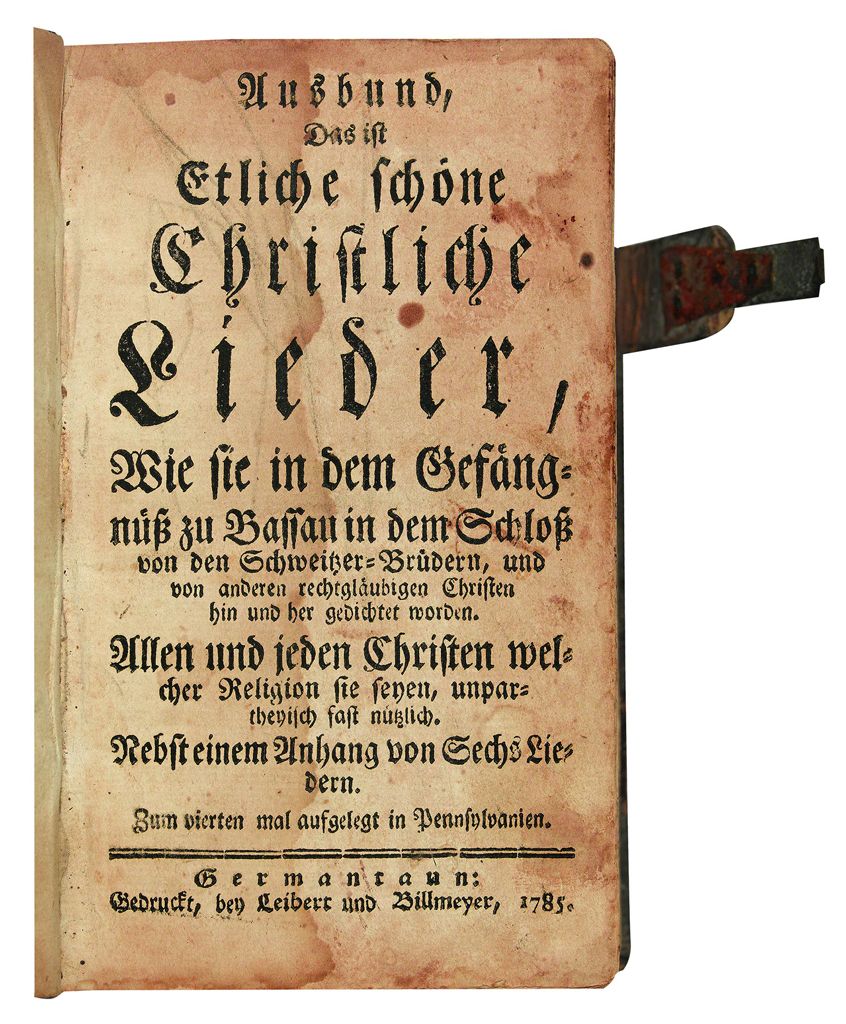 Ausbund,
Das ist
Etliche schöne
Christliche
Lieder,
Wie sie in dem Gefäng-
nüß zu Bassau in dem Schloß
von den Schweitzer-Brüdern, und
von anderen rechtgläubigen Christen
hin und her gedichtet worden.
Allen und jeden Christen wel-
cher Religion sie seyen, unpar-
theyisch fast nützlich.
Nebst einem Anhang von Sechs Lie-
dern.
Zum vierten mal aufgelegt in Pennsylvanien.
Germantaun:
Gedruckt, bey Leibert und Billmeyer, 1785.